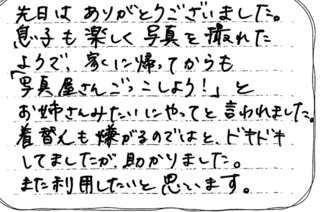 先日は ありがとうございました。
息子も楽しく写真を撮れた
ようで、家に帰ってからも
「写真屋さんごっこしよう!」と
お姉さんみたいにやってと言われました。
着替えも嫌がるのではと、ドキドキ
してましたが助かりました。
また利用したいと思っています。